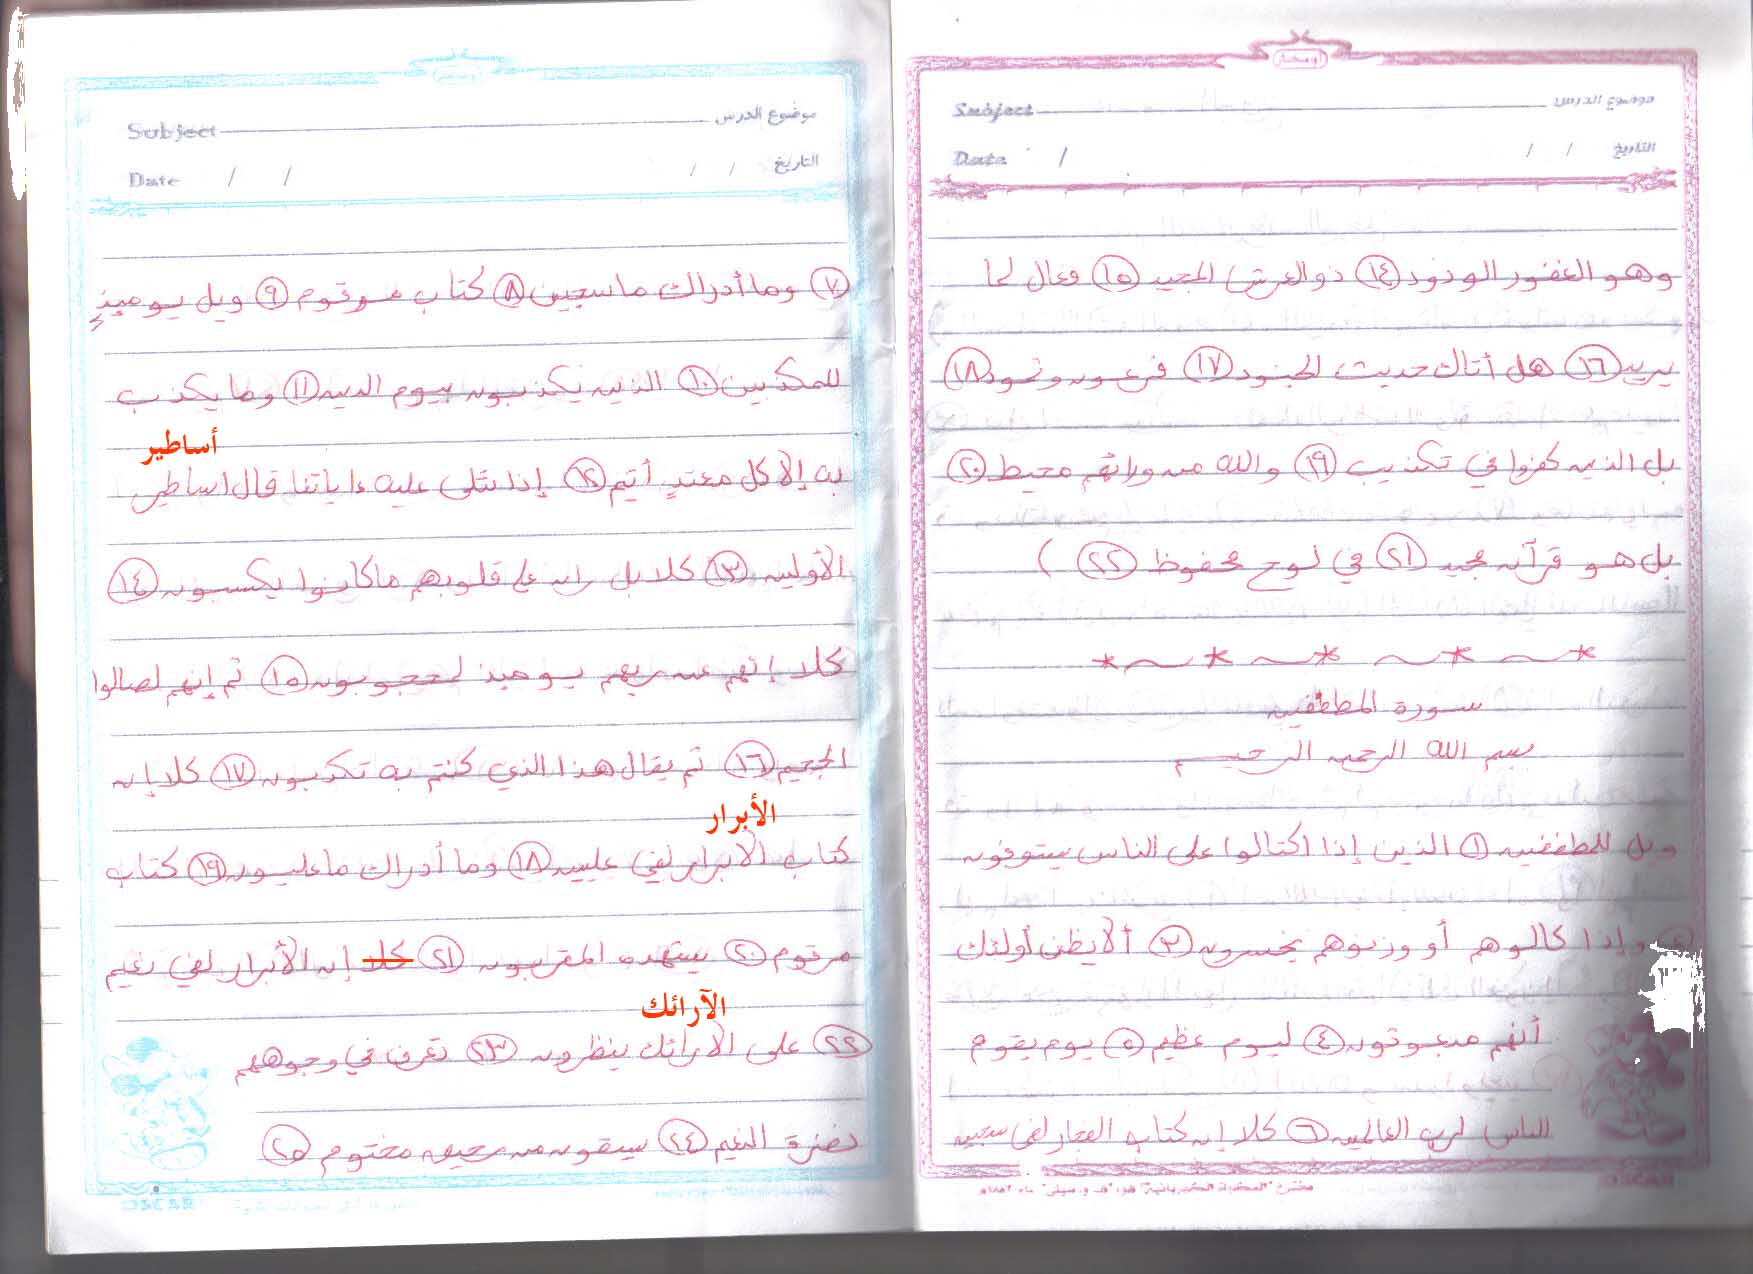 موضوع الدرس Subject
التاريخ / / Date /
وهو الغفور الودود ١٤ ذو العرش المجيد ١٥ فعال لما
يريد ١٦ هل أتاك حديث الجنود ١٧ فرعون وثمود ١٨
بل الذين كفروا في تكذيب ١٩ والله من ورائهم محيط ٢٠
بل هو قرآن مجيد ٢١ في لوح محفوظ ٢٢ )
سورة المطففين
بسم الله الرحمن الرحيم
ويل للمطففين ١ الذين إذا اكتالوا على الناس يستوفون
٢ وإذا كالوهم أو وزنوهم يخسرون ٣ ألا يظن أولئك
أنهم مبعوثون ٤ ليوم عظيم ٥ يوم يقوم
الناس لرب العالمين ٦ كلا إن كتاب الفجار لفي سجين
OSCAR
موضوع الدرس Subject
التاريخ / / Date / /
٧ وما أدراك ما سجين ٨ كتاب مرقوم ٩ ويل يومئذٍ
للمكذبين ١٠ الذين يكذبون بيوم الدين ١١ وما يكذب
أساطير
به إلا كل معتدٍ أثيم ١٢ إذا تتلى عليه ءاياتنا قال اساطير
الأولين ١٣ كلا بل ران على قلوبهم ما كانوا يكسبون ١٤
كلا إنهم عن ربهم يومئذ لمحجوبون ١٥ ثم إنهم لصالوا
الجحيم ١٦ ثم يقال هذا الذي كنتم به تكذبون ١٧ كلا إن
الأبرار
كتاب الابرار لفي عليين ١٨ وما أدراك ما عليون ١٩ كتاب
مرقوم ٢٠ يشهده المقربون ٢١ كلا إن الأبرار لفي نعيم
الآرائك
٢٢ على الارائك ينظرون ٢٣ تعرف في وجوههم
نضرة النعيم ٢٤ يسقون من رحيق مختوم ٢٥
OSCAR